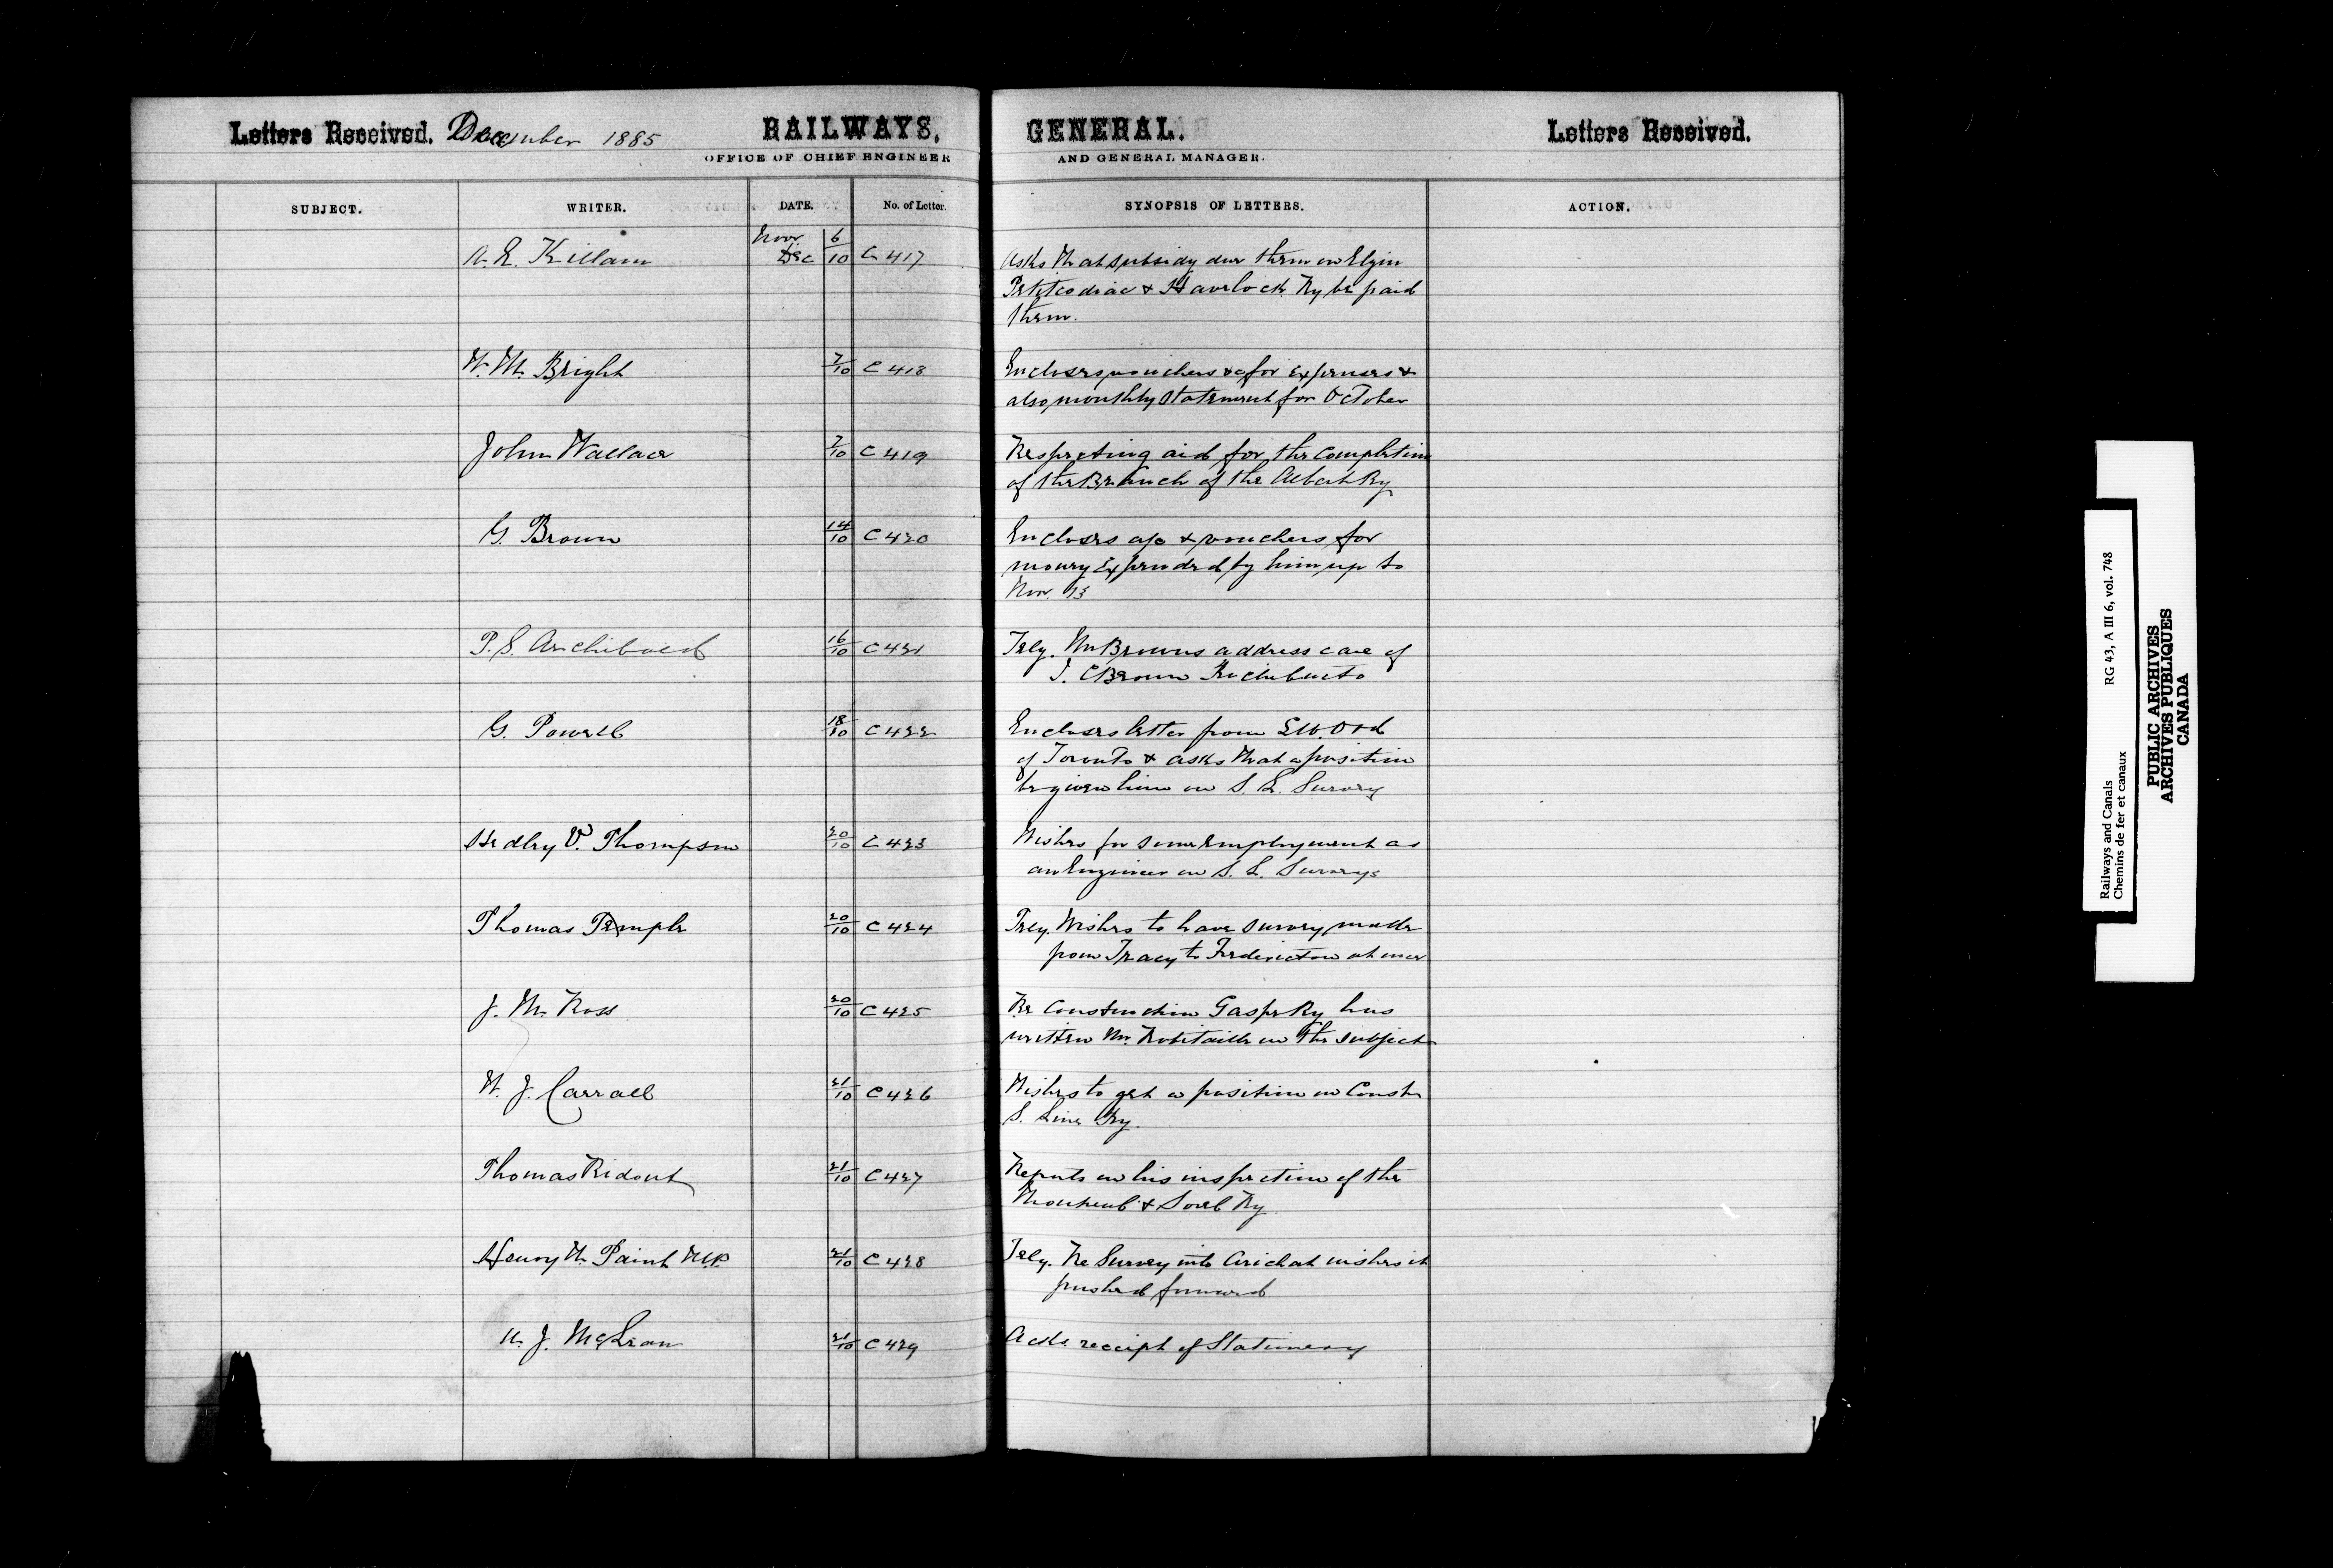 Letters Received. December 1885 RAILWAYS, GENERAL. Letters Received.
OFFICE OF CHIEF ENGINEER AND GENERAL MANAGER.
SUBJECT. WRITER. DATE. No. of Letter. SYNOPSIS OF LETTERS. ACTION.
Nov 6
A. E. Killam Dec 10 C 417 Asks that subsidy due them on Elgin
Petitcodiac & Havelock Ry be paid
them.
W. M. Bright 7/10 C 418 Encloses vouchers &c for Expenses &
also monthly Statement for October
John Wallace 7/10 C 419 Respecting aid for the Completion
of the Branch of the Albert Ry
G. Brown 14/10 C 420 Encloses a/c & vouchers for
money Expended by him up to
Nov. 13
P. S. Archibald 16/10 C 421 Tely. Mr Browns address care of
T. C Brown Richibucto
G. Powell 18/10 C 422 Encloses letter from
of Toronto & asks that a position
be given him on S. L. Survey
Hedley V. Thompson 20/10 C 423 Wishes for some Employment as
an Engineer on S. L. Surveys
Thomas Temple 20/10 C 424 Tely. Wishes to have survey made
from Tracy to Fredericton at once
J. M. Ross 20/10 C 425 Re Construction Gaspe Ry has
written Mr. Robitaille on the subject
W. J. Carrall 21/10 C 426 Wishes to get a position on Constn
S. Line Ry.
Thomas Ridout 21/10 C 427 Reports on his inspection of the
Montreal & Sorel Ry
Henry N. Paint M.P. 21/10 C 428 Tely. Re Survey into Arichat wishes it
pushed forward
J. McLean 21/10 C 429 Acks. receipt of Stationery
Railways and Canals RG 43, A III 6, vol. 748
Chemins de fer et canaux
PUBLIC ARCHIVES
ARCHIVES PUBLIQUES
CANADA